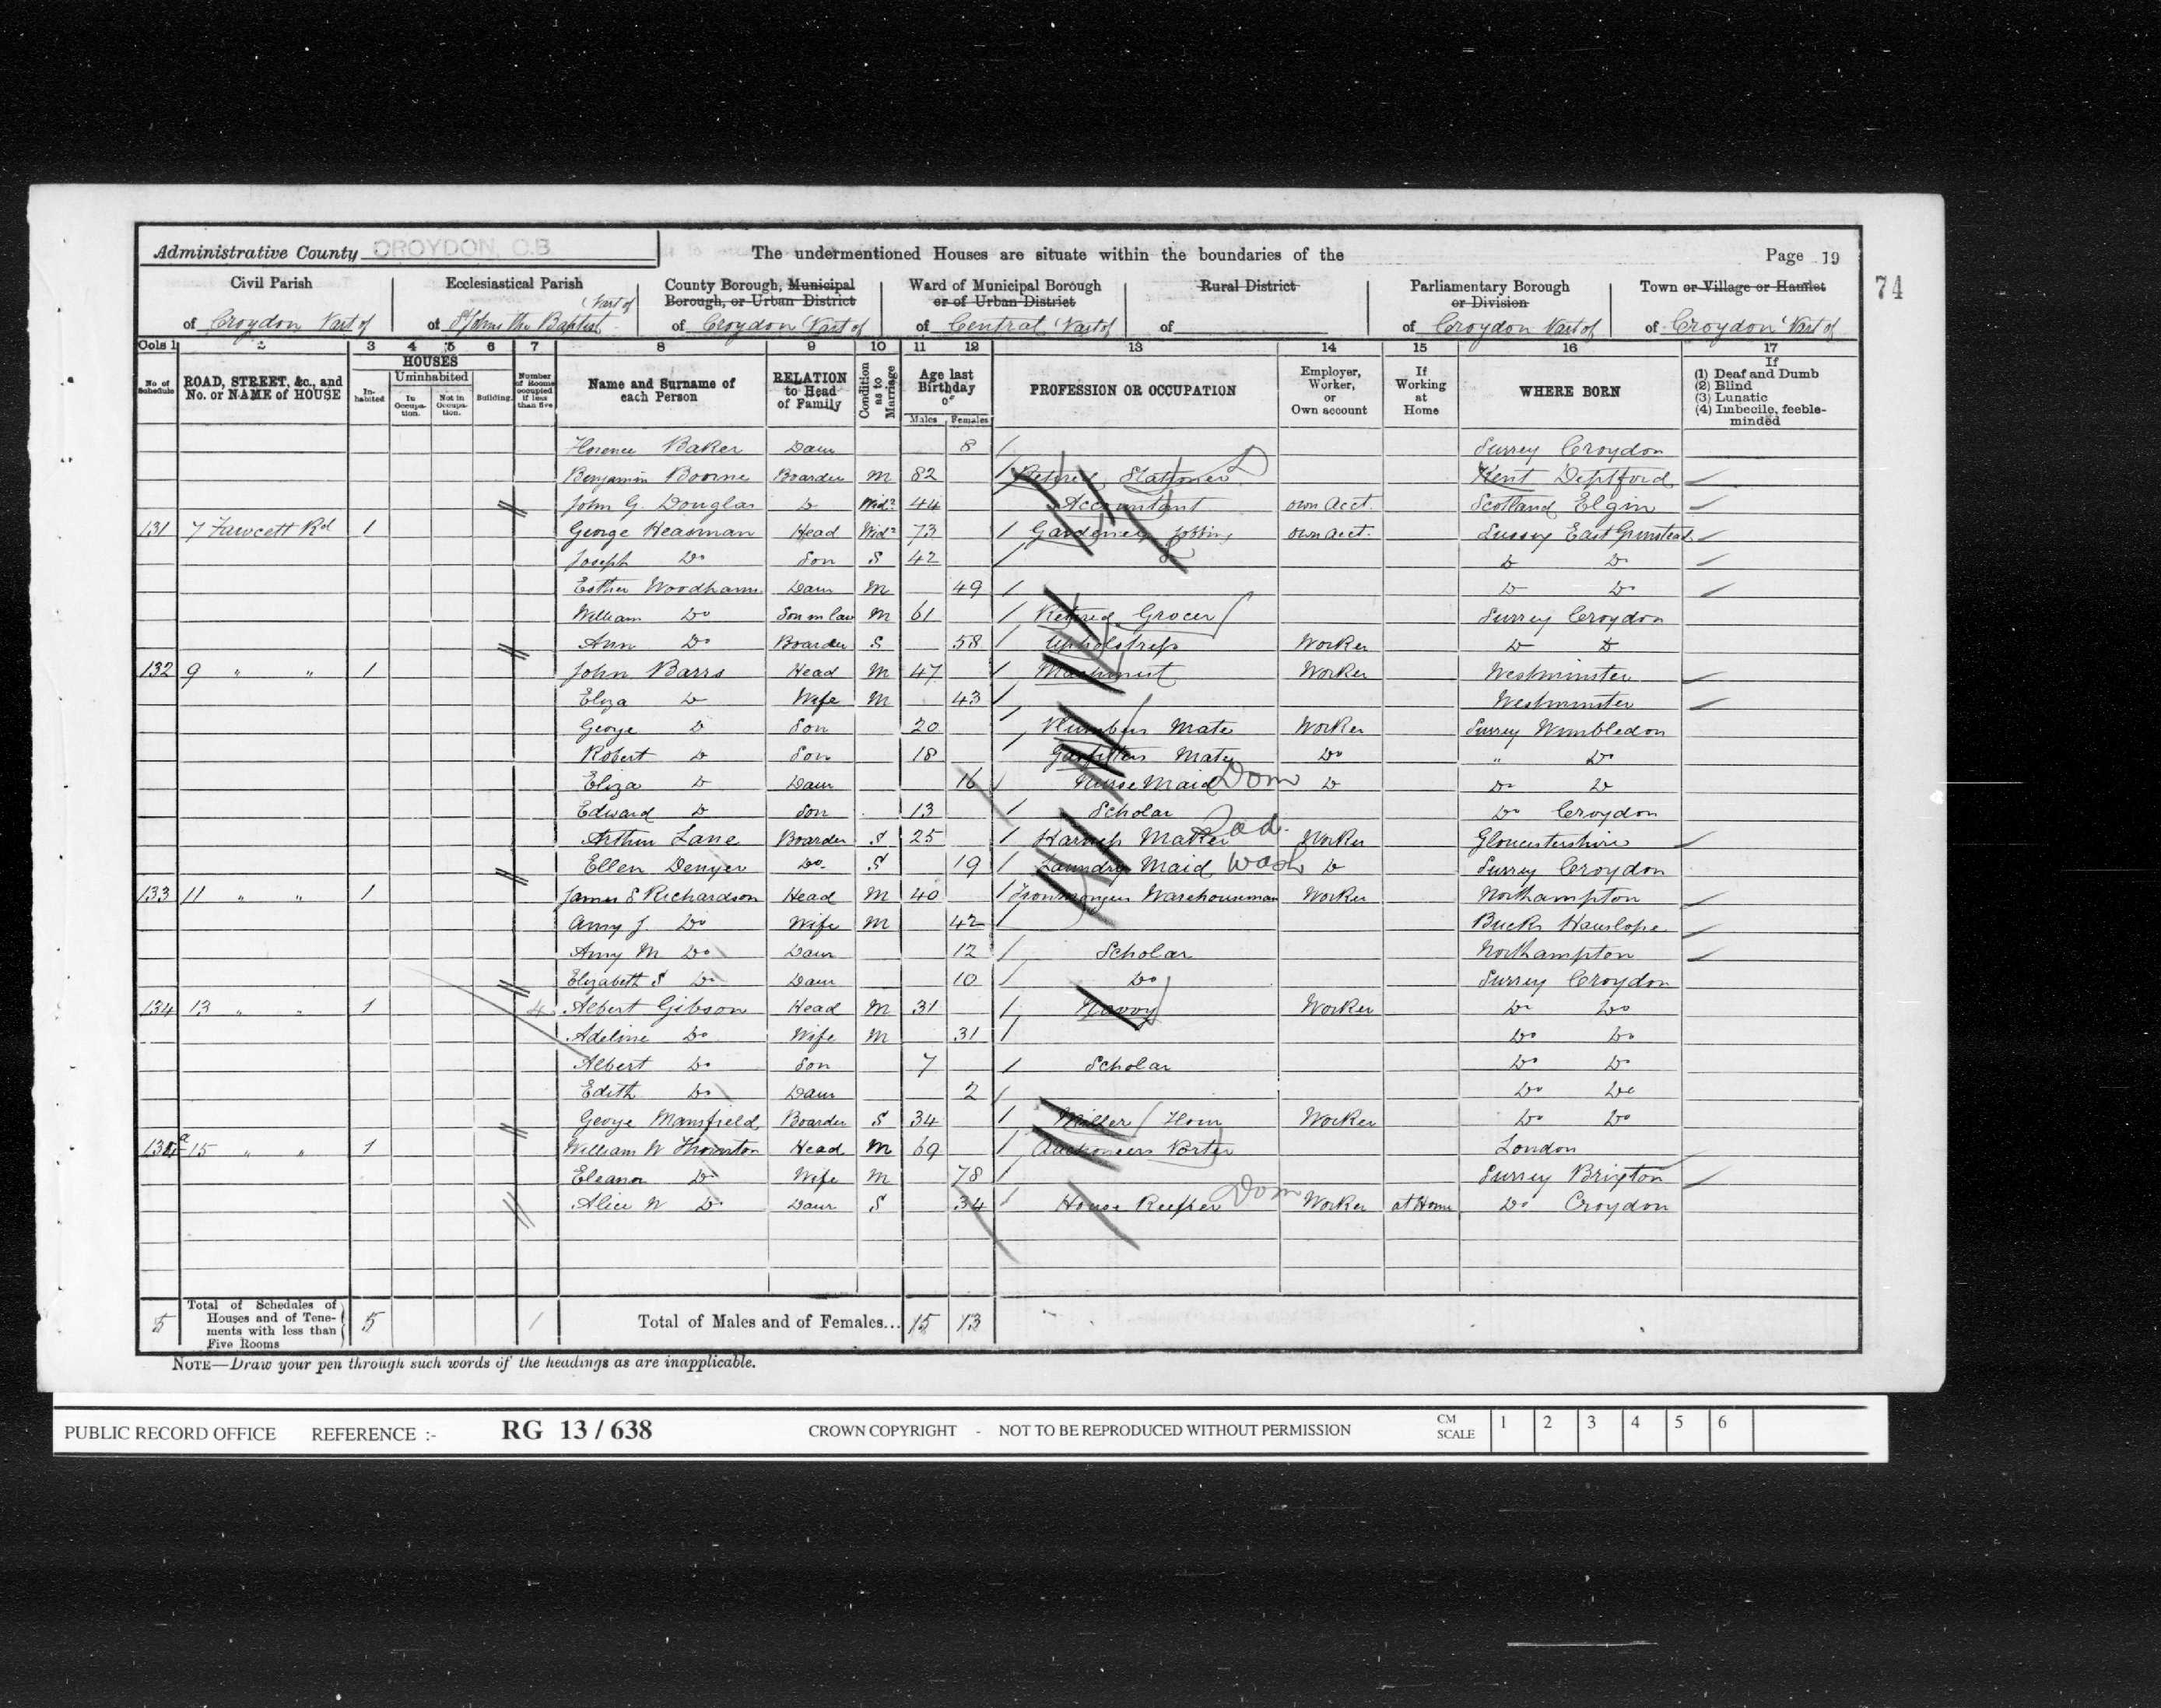 Administrative County CROYDON, C.B.
The undermentioned Houses are situate within the boundaries of the
Page 19
74
Civil Parish of Croydon Part of
Ecclesiastical Parish of St Johns the Baptist (Part of
County Borough, Municipal Borough, or Urban District of Croydon Part of
Ward of Municipal Borough or of Urban District of Central Part of
Rural District of
Parliamentary Borough or Division of Croydon Part of
Town or Village or Hamlet of Croydon Part of
Cols 1 2 3 4 5 6 7 8 9 10 11 12 13 14 15 16 17
No. of Schedule
ROAD, STREET, &c., and No. or NAME of HOUSE
HOUSES
In-habited
Uninhabited
In Occupa-tion.
Not in Occupa-tion.
Building.
Number of Rooms occupied if less than five
Name and Surname of each Person
RELATION to Head of Family
Condition as to Marriage
Age last Birthday of
Males Females
PROFESSION OR OCCUPATION
Employer, Worker, or Own account
If Working at Home
WHERE BORN
If
(1) Deaf and Dumb
(2) Blind
(3) Lunatic
(4) Imbecile, feeble-minded
Florence Baker Daur 8 Surrey Croydon
Benjamin Boorne Boarder M 82 Retired Stationer Kent Deptford
John G. Douglas Do Widr 44 Accountant own acct. Scotland Elgin
131 7 Fawcett Rd 1 George Heasman Head Widr 73 Gardener Jobbing own acct. Sussex East Grinstead
Joseph Do Son S 42 Do Do
Esther Woodhams Daur M 49 Do Do
William Do Son in law M 61 Retired Grocer Surrey Croydon
Ann Do Boarder S 58 Upholstress Worker Do Do
132 9 " " 1 John Barrs Head M 47 Machinist Worker Westminster
Eliza Do Wife M 43 Westminster
George Do Son 20 Plumbers Mate Worker Surrey Wimbledon
Robert Do Son 18 Gasfitters Mate Do " Do
Eliza Do Daur 16 Nurse Maid Dom Do Do Do
Edward Do Son 13 Scholar Do Croydon
Arthur Lane Boarder S 25 Harness Maker Sad. Worker Gloucestershire
Ellen Denyer Do S 19 Laundry Maid Wash Do Surrey Croydon
133 11 " " 1 James S Richardson Head M 40 Ironmongers Warehouseman Worker Northampton
Amy J. Do Wife M 42 Bucks Hanslope
Amy M Do Daur 12 Scholar Northampton
Elizabeth S Do Daur 10 Do Surrey Croydon
134 13 " " 1 4 Albert Gibson Head M 31 Navvy Worker Do Do
Adeline Do Wife M 31 Do Do
Albert Do Son 7 Scholar Do Do
Edith Do Daur 2 Do Do
George Mansfield Boarder S 34 Miller Worker Do Do
15 " " 1 William W Thornton Head M 69 Auctioneers Porter London
Eleanor Do Wife M 78 Surrey Brixton
Alice W Do Daur S 34 House Keeper Dom Worker at Home Do Croydon
5 Total of Schedules of Houses and of Tene-ments with less than Five Rooms 5 1 Total of Males and of Females... 15 13
NOTE—Draw your pen through such words of the headings as are inapplicable.
PUBLIC RECORD OFFICE REFERENCE :- RG 13 / 638 CROWN COPYRIGHT - NOT TO BE REPRODUCED WITHOUT PERMISSION CM SCALE 1 2 3 4 5 6